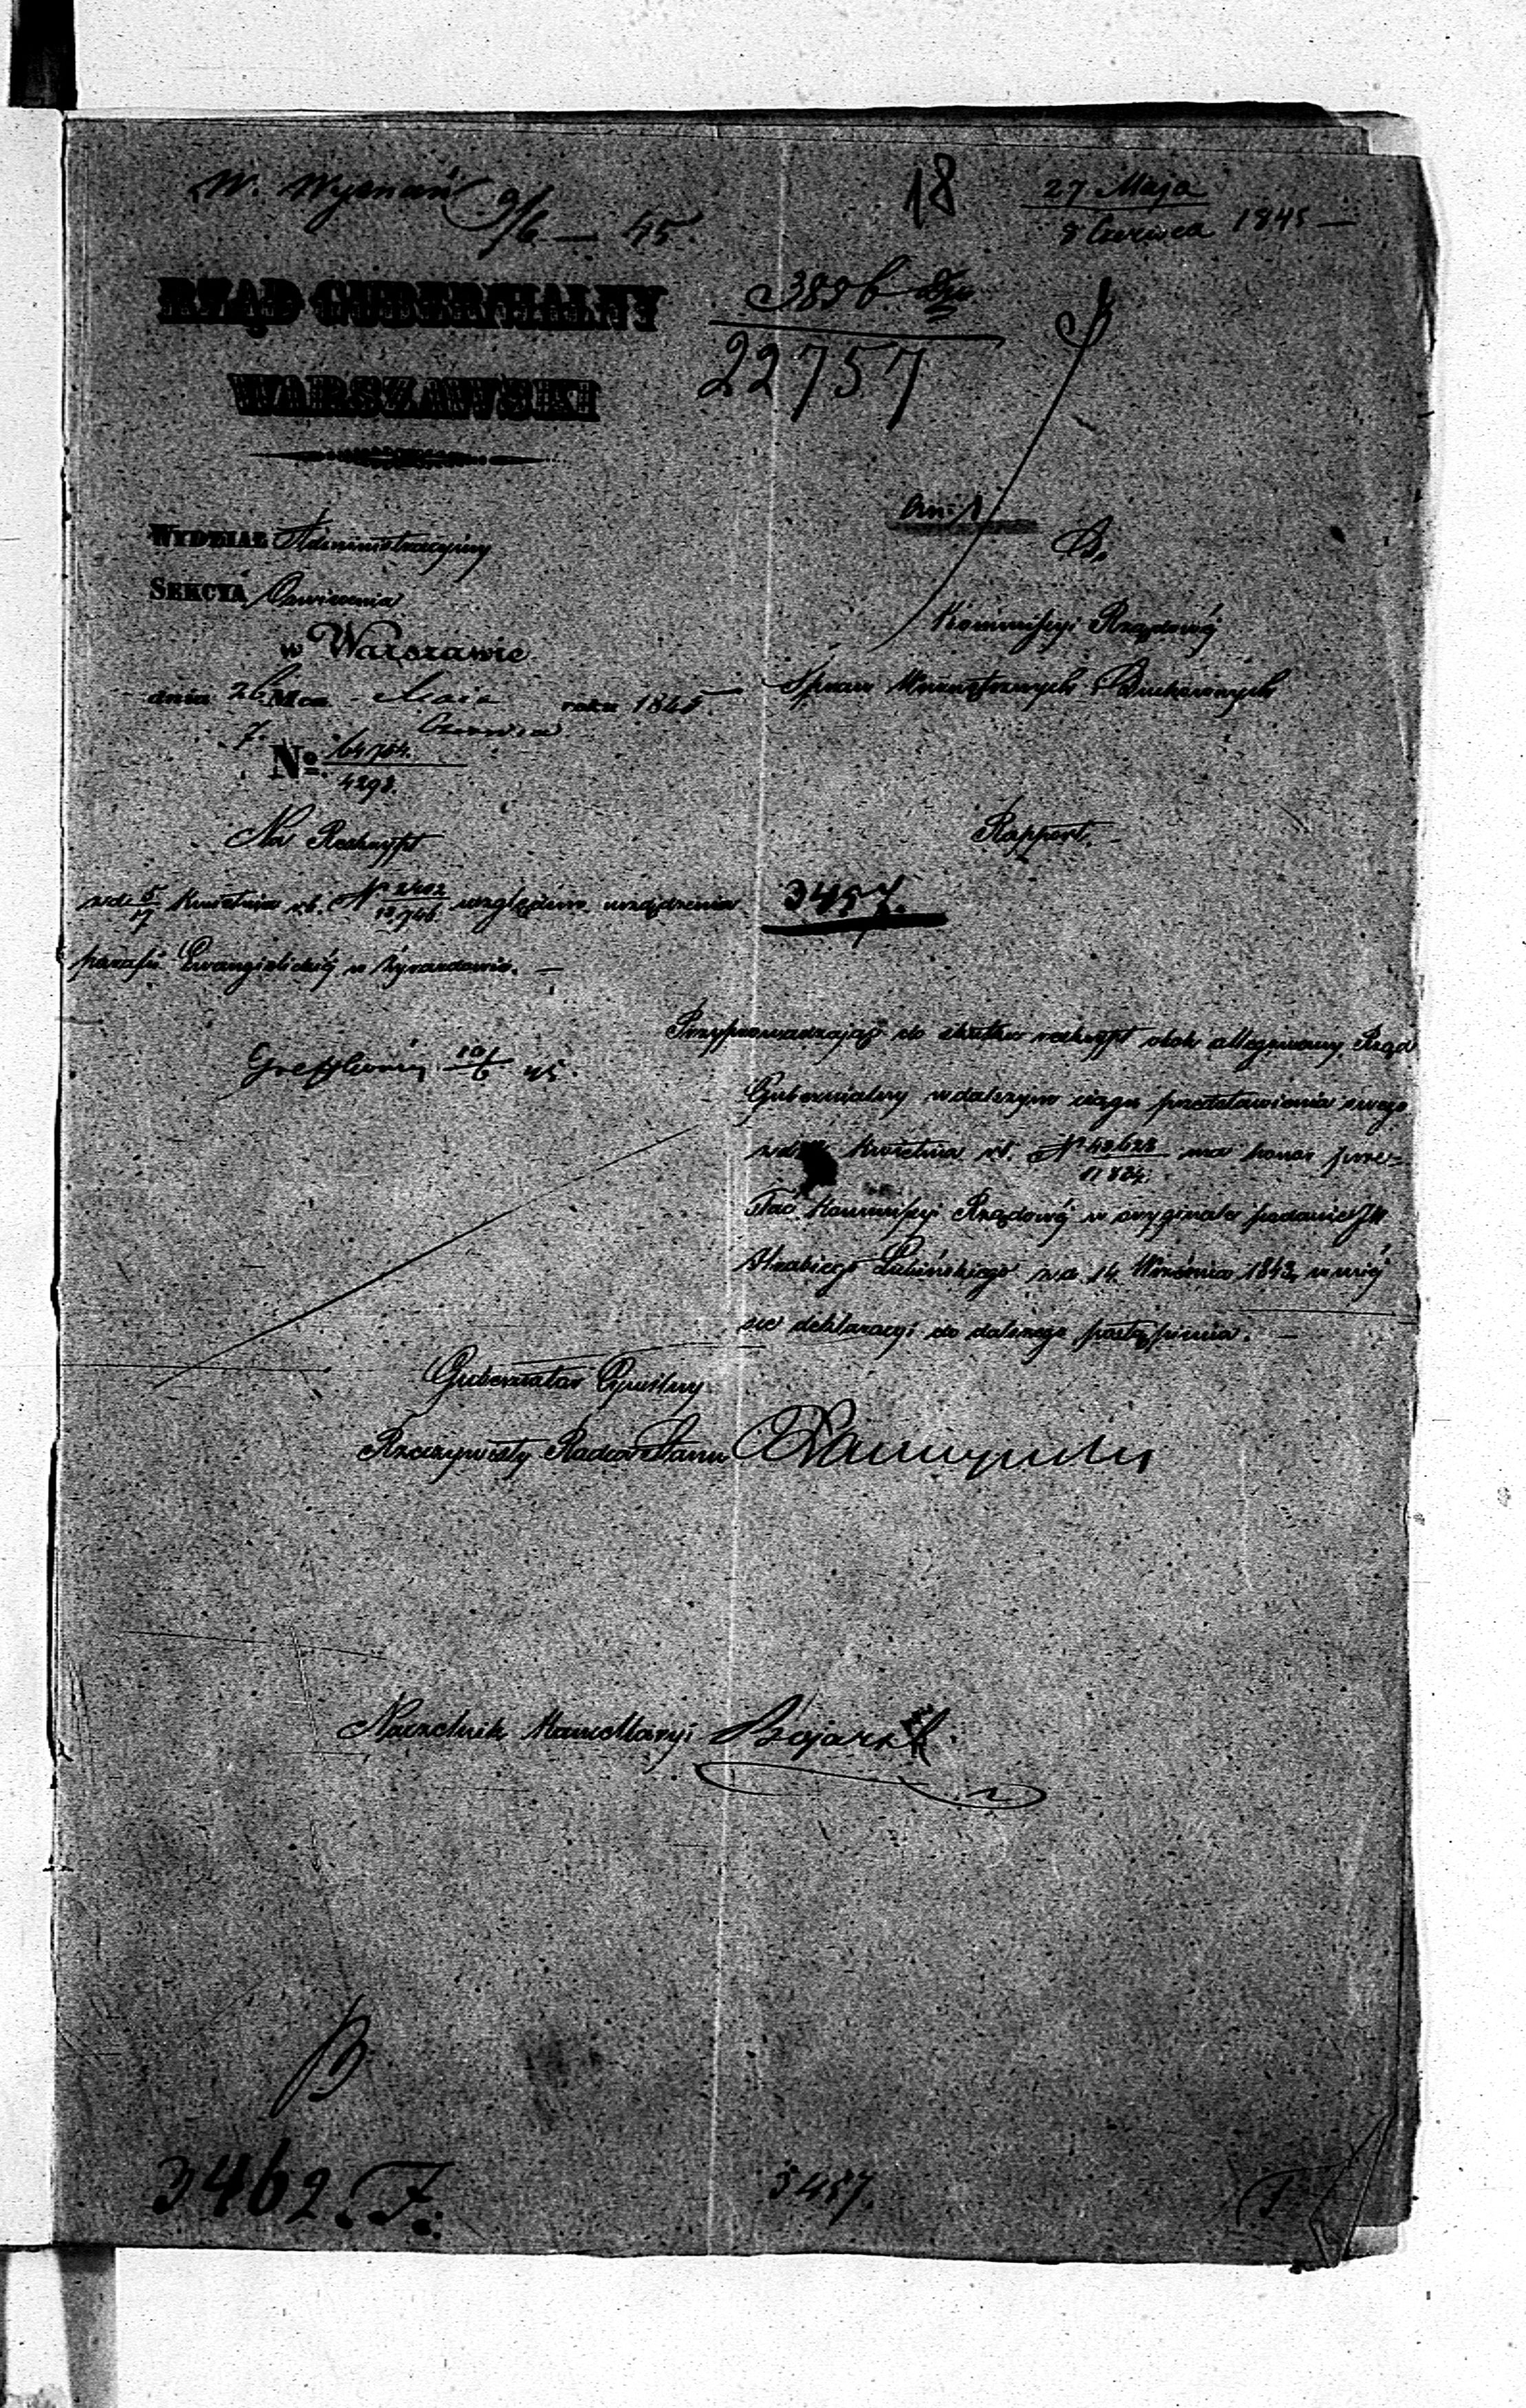 W. Wyznań 9/6 — 45.
18
27 Maja
8 Czerwca 1845 —
RZĄD GUBERNIALNY
WARSZAWSKI
22757
WYDZIAŁ Administracyjny
SEKCYA Oświecenia
w Warszawie
dnia 26 Mca Maja roku 1845.
7. Czerwca
No. 64764.
4298.
Na Reskrypt
z d. 5/17 Kwietnia r.b. N względem urządzenia
parafii Ewangielickiéj w Żyrardowie. —
10/6 45.
An: 1
Do
Kommissyi Rządowéj
Spraw Wewnętrznych i Duchownych
Rapport. —
3457.
Przyprowadzając do skutku reskrypt obok allegowany, Rząd
Gubernialny w dalszym ciągu przedstawienia swego
z d. Kwietnia r.b. N 42628/11834. ma honor prze-
słać Kommissyi Rządowéj w oryginale podanie JW
Hrabiego Łubińskiego z d. 14 Września 1843, w miéj
sce deklaracyi do dalszego postąpienia. —
Gubernator Cywilny
Rzeczywisty Radca Stanu
Naczelnik Kancellaryi
3462. F.
3457.